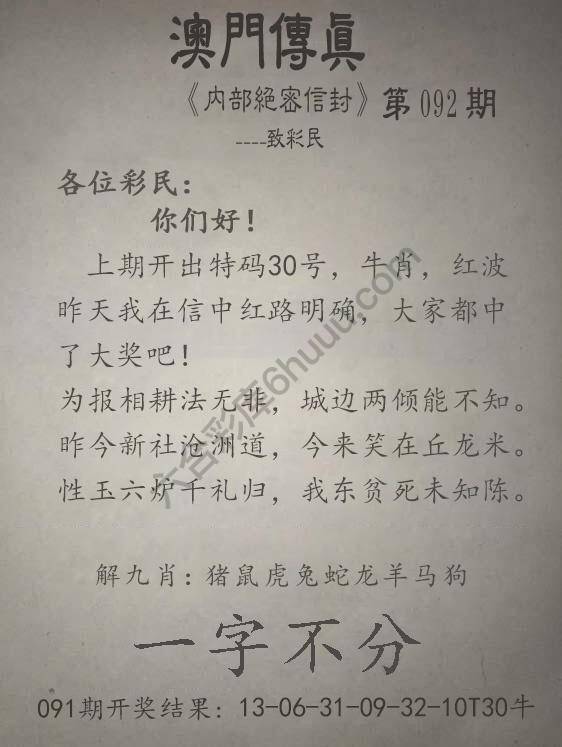 澳門傳眞
《内部絕密信封》第092期
----致彩民
各位彩民：
你们好！
上期开出特码30号，牛肖，红波
昨天我在信中红路明确，大家都中
了大奖吧！
为报相耕法无非，城边两倾能不知。
昨今新社沧洲道，今来笑在丘龙米。
性玉六炉千礼归，我东贫死未知陈。
六合彩库6huuu.com
解九肖：猪鼠虎兔蛇龙羊马狗
一字不分
091期开奖结果：13-06-31-09-32-10T30牛